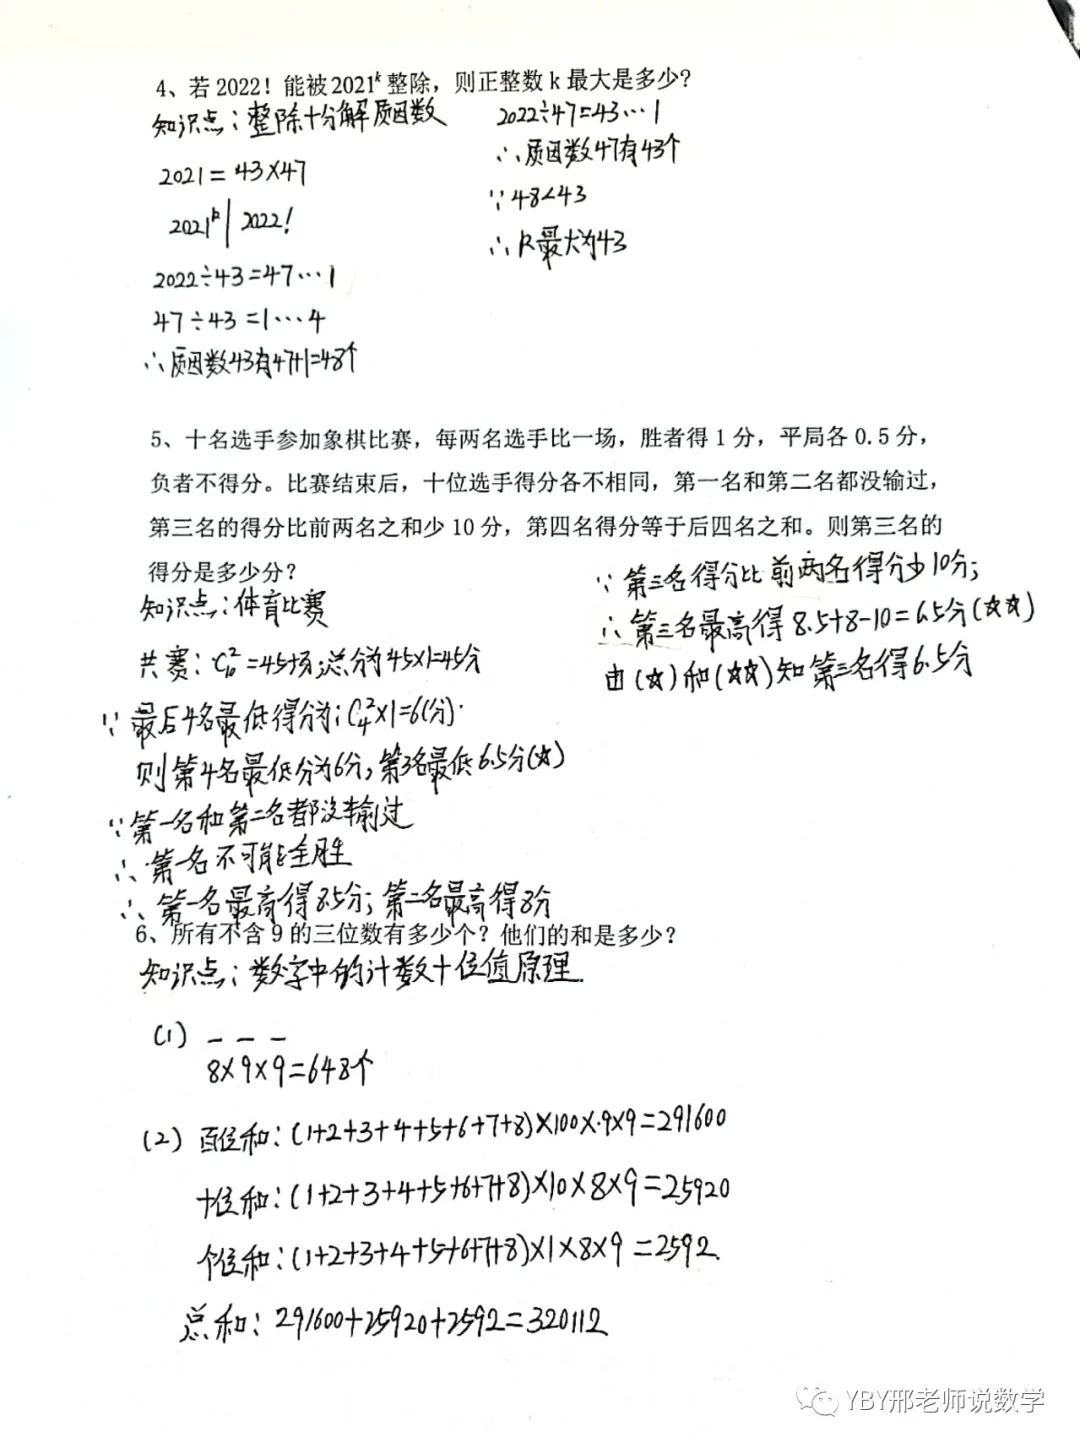 4、若 2022！能被 2021^k 整除，则正整数 k 最大是多少？
知识点：整除+分解质因数
2021=43×47
2021^k | 2022!
2022÷43=47…1
47÷43=1…4
∴质因数43有47+1=48个
2022÷47=43…1
∴质因数47有43个
∵48<43
∴k最大为43
5、十名选手参加象棋比赛，每两名选手比一场，胜者得 1 分，平局各 0.5 分，
负者不得分。比赛结束后，十位选手得分各不相同，第一名和第二名都没输过，
第三名的得分比前两名之和少 10 分，第四名得分等于后四名之和。则第三名的
得分是多少分？
知识点：体育比赛
共赛：C₁₀²=45场；总分为45×1=45分
∵最后4名最低得分为：C₄²×1=6(分).
则第4名最低分为6分，第3名最低6.5分(☆)
∵第一名和第二名都没输过
∴第一名不可能全胜
∴第一名最高得8.5分；第二名最高得8分
∵第三名得分比前两名得分少10分；
∴第三名最高得8.5+8-10=6.5分(☆☆)
由(☆)和(☆☆)知第三名得6.5分
6、所有不含 9 的三位数有多少个？他们的和是多少？
知识点：数字中的计数+位值原理.
(1) _ _ _
8×9×9=648个
(2) 百位和：(1+2+3+4+5+6+7+8)×100×9×9=291600
十位和：(1+2+3+4+5+6+7+8)×10×8×9=25920
个位和：(1+2+3+4+5+6+7+8)×1×8×9=2592.
总和：291600+25920+2592=320112
YBY邢老师说数学